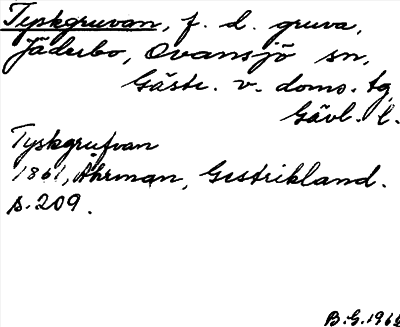 Tyskgruvan, f. d. gruva,
Jäderbo, Ovansjö sn,
Gästr. v. doms. tg
Gävl. l.
Tyskgrufvan
1861, Åhrman, Gestrikland.
s. 209.
B.G. 196